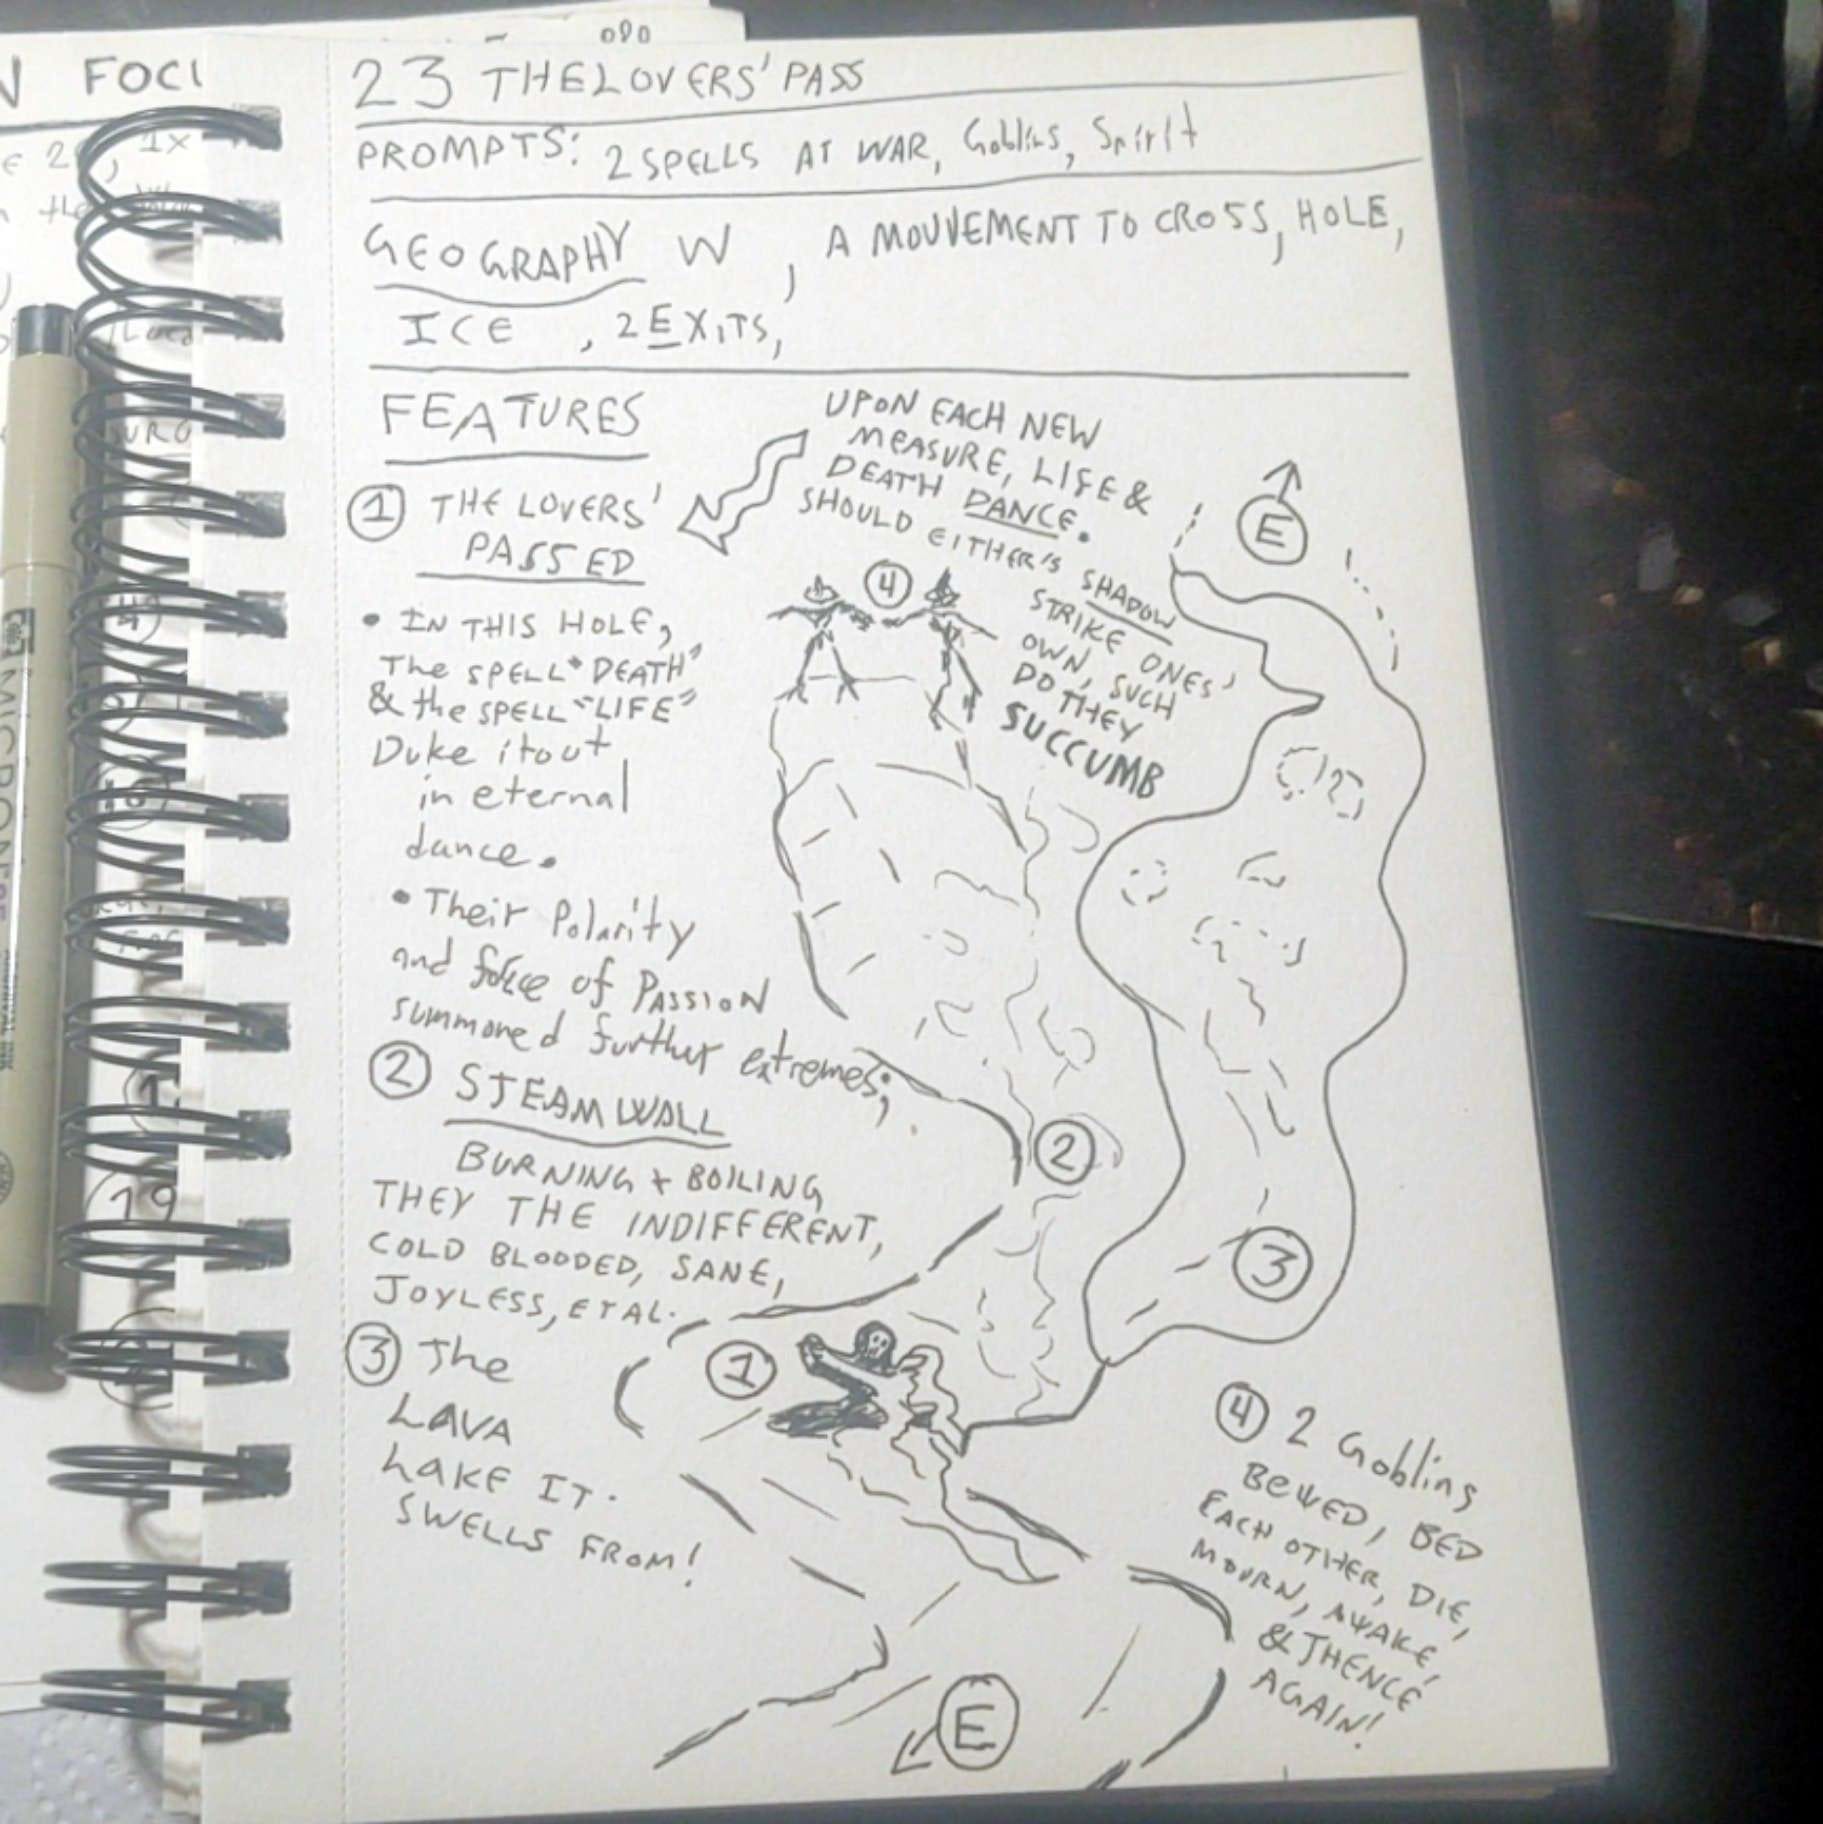 N FOCI
23 THE LOVERS' PASS
PROMPTS: 2 SPELLS AT WAR, Goblins, Spirit
GEOGRAPHY W , A MOUVEMENT TO CROSS, HOLE,
ICE , 2 EXITS,
FEATURES
1 THE LOVERS'
PASSED
• IN THIS HOLE,
The SPELL "DEATH"
& the SPELL "LIFE"
Duke it out
in eternal
dance.
• Their Polarity
and force of PASSION
summoned further extremes;
2 STEAM WALL
BURNING + BOILING
THEY THE INDIFFERENT,
COLD BLOODED, SANE,
JOYLESS, ET AL.
3 The
LAVA
LAKE IT.
SWELLS FROM!
UPON EACH NEW
MEASURE, LIFE &
DEATH DANCE.
SHOULD EITHER'S SHADOW
STRIKE ONES'
OWN, SUCH
DO THEY
SUCCUMB
4
E
2
3
1
E
4 2 Goblins
BEWED, BED
EACH OTHER, DIE,
MOURN, AWAKE,
& THENCE
AGAIN!
MICRON
19